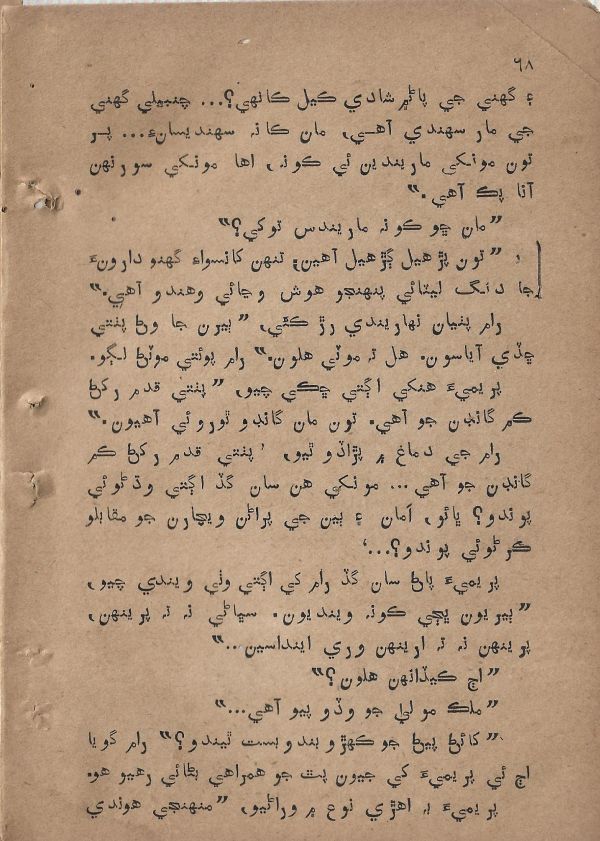 ٦٨
۽ گهڻي جي پاڻ ۾ شادي ڪيل ڪانهي؟... چنبيلي گهڻي
جي مار سهندي آهي، مان ڪانہ سهنديسانءِ... پر
تون مونکي ماريندين ئي ڪونہ، اها مونکي سورنهن
آنا پڪ آهي."
"مان ڇو ڪونہ ماريندس توکي؟"
"تون پڙهيل ڳڙهيل آهين؛ تنهن کانسواءِ گهڻو دارونءَ
جا دنگ ليٽائي پنهنجو هوش وڃائي وهندو آهي."
رام پٺيان نهاريندي رڙ ڪئي، "ٻيرن جا وڻ پٺتي
ڇڏي آياسون. هل تہ موٽي هلون." رام پوئتي موٽڻ لڳو.
پريميءَ هنکي اڳتي ڇڪي چيو، "پٺتي قدم رکڻ
ڪم گانڊن جو آهي. تون مان گانڊو ٿوروئي آهيون."
رام جي دماغ ۾ پڙاڏو ٿيو، 'پٺتي قدم رکڻ ڪم
گانڊن جو آهي... مونکي هن سان گڏ اڳتي وڌڻوئي
پوندو؟ ڀائو، امان ۽ ٻين جي پراڻن ويچارن جو مقابلو
ڪرڻوئي پوندو؟...'
پريميءَ پاڻ سان گڏ رام کي اڳتي وٺي ويندي چيو،
"ٻيريون ڀڄي ڪونہ وينديون. سڀاڻي نہ تہ پرينهن،
پرينهن نہ تہ ارينهن وري اينداسين..."
"اڄ ڪيڏانهن هلون؟"
"ملڪ مولىٰ جو وڏو پيو آهي..."
"کائڻ پيئڻ جو ڪهڙو بندوبست ٿيندو؟" رام گويا
اڄ ئي پريميءَ کي جيون پٿ جو همراهي بڻائي رهيو هو.
پريميءَ بہ اهڙي نوع ۾ وراڻيو، "منهنجي هوندي